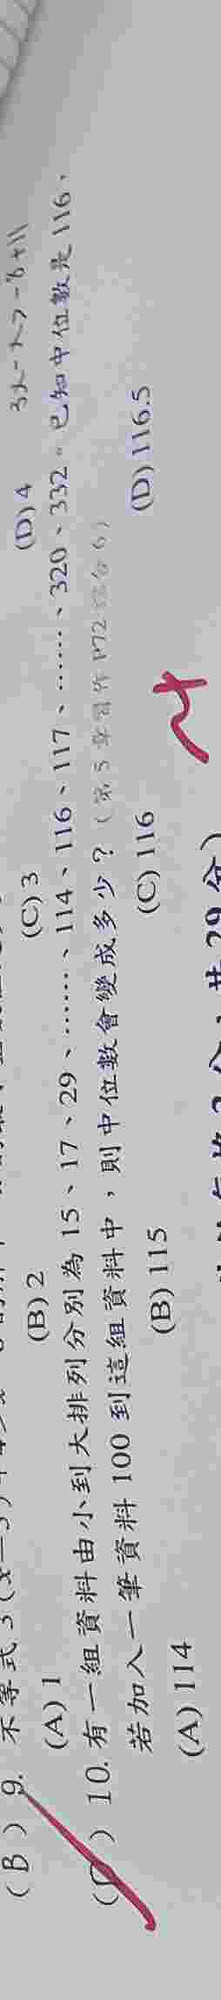 (B) 9. 不等式 3(x-5)
(A) 1 (B) 2 (C) 3 (D) 4 3x-x>-8+11
(D) 10. 有一組資料由小到大排列分別為 15、17、29、……、114、116、117、……、320、332。已知中位數是 116,
若加入一筆資料 100 到這組資料中,則中位數會變成多少?(第5章習作 P72 綜合 6)
(A) 114 (B) 115 (C) 116 (D) 116.5